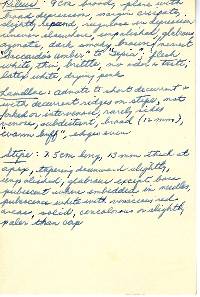 Pileus: 9cm broad, plane with
broad depression, margin
with
unpolished, glabrous
azonate, dark smoky brown, nearest
"Saccardo's umber" to "Sepia".
white, thin, brittle, no odor or taste,
latex white, drying pink
Lamellae: adnate to short decurrent
with decurrent ridges on stipe, not
forked or intervenose, rarely
subdistant, broad (12 mm),
"warm buff", edges even
Stipe: 2.5 cm long, 13 mm thick at
apex, tapering downward slightly,
unpolished, glabrous except base
pubescent where embedded in needles,
pubescence white with vinaceous red
areas, solid, concolorous or slightly
paler than cap